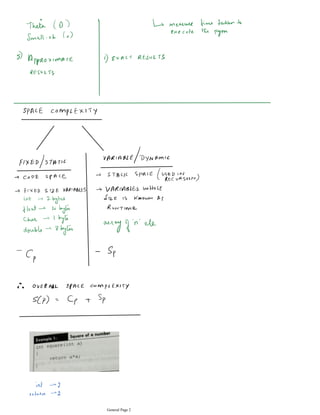 Theta (θ)
Small-oh (o)
↳ measure time taken to execute the pgm
3) Approximate RESULTS
1) EXACT RESULTS
SPACE COMPLEXITY
FIXED/STATIC
→ CODE SPACE
→ FIXED SIZE VARIABLES
int → 2 bytes
float →
char → 1 byte
double → 8 bytes
- Cp
VARIABLE/DYNAMIC
→ STACK SPACE (USED IN RECURSION)
→ VARIABLES WHOSE
SIZE IS KNOWN AS
RUNTIME
array of 'n' ele
- Sp
∴ OVERALL SPACE COMPLEXITY
S(P) = Cp + Sp
Example 1: Square of a number
int square(int a)
{
return a*a;
}
int → 2
return → 2
General Page 2